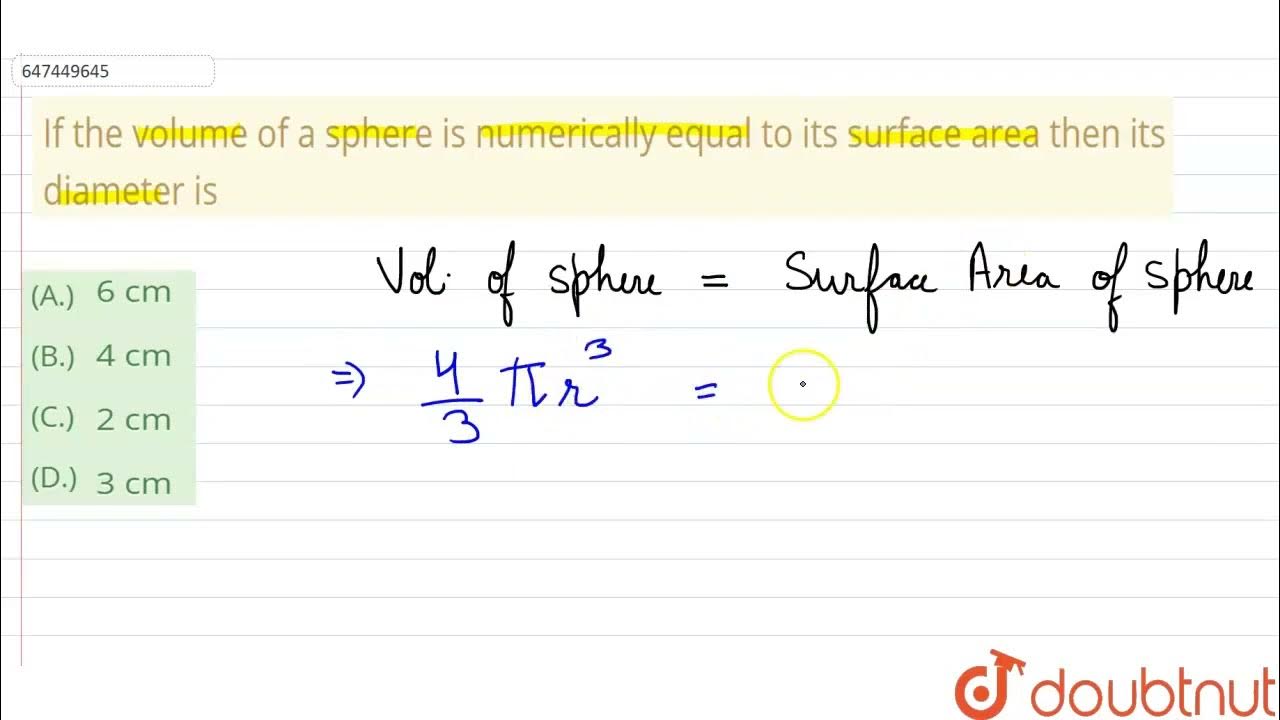 647449645
If the volume of a sphere is numerically equal to its surface area then its
diameter is
Vol. of sphere = Surface Area of sphere
(A.) 6 cm
(B.) 4 cm
⇒ 4/3 πr³ =
(C.) 2 cm
(D.) 3 cm
doubtnut